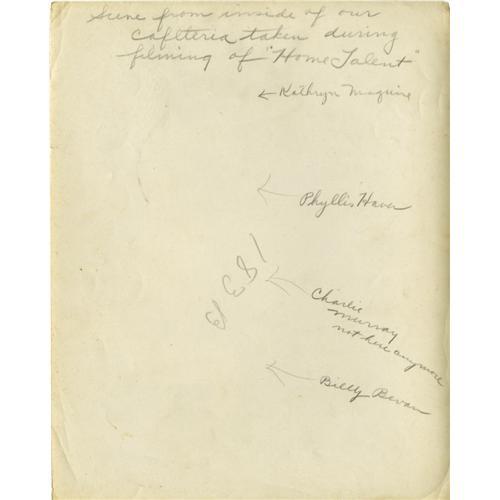 Scene from inside of our
cafeteria taken during
filming of "Home Talent"
← Kathryn Maguire
← Phyllis Haver
← Charlie
Murray
not here anymore
← Billy Bevan